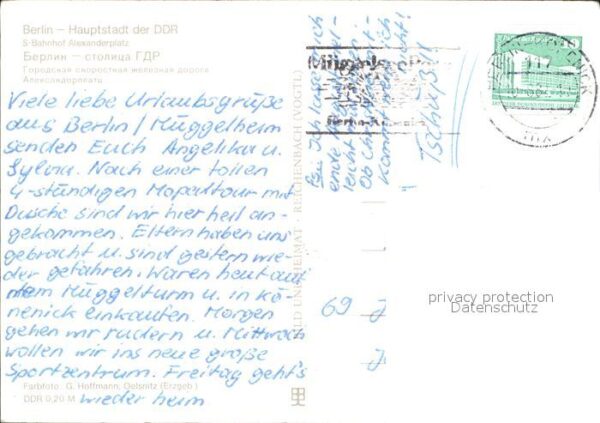 Berlin — Hauptstadt der DDR
S-Bahnhof Alexanderplatz
Берлин — столица ГДР
Городская скоростная железная дорога
Александерплатц
Viele liebe Urlaubsgrüße
aus Berlin/Müggelheim
senden Euch Angelika u.
Sylvia. Nach einer tollen
4-stündigen Mopedtour mit
Dusche sind wir hier heil an-
gekommen. Eltern haben uns
gebracht u. sind gestern wie-
der gefahren. Waren heut auf
dem Müggelturm u. in Kö-
penick einkaufen. Morgen
gehen wir rudern u. Mittwoch
wollen wir ins neue große
Sportzentrum. Freitag geht's
wieder heim
Farbfoto: G. Hoffmann, Oelsnitz (Erzgeb.)
DDR 0,20 M
BILD UND HEIMAT · REICHENBACH (VOGTL)
ich
Ob ich
kommt
Tschüß!
69 J
J
privacy protection
Datenschutz